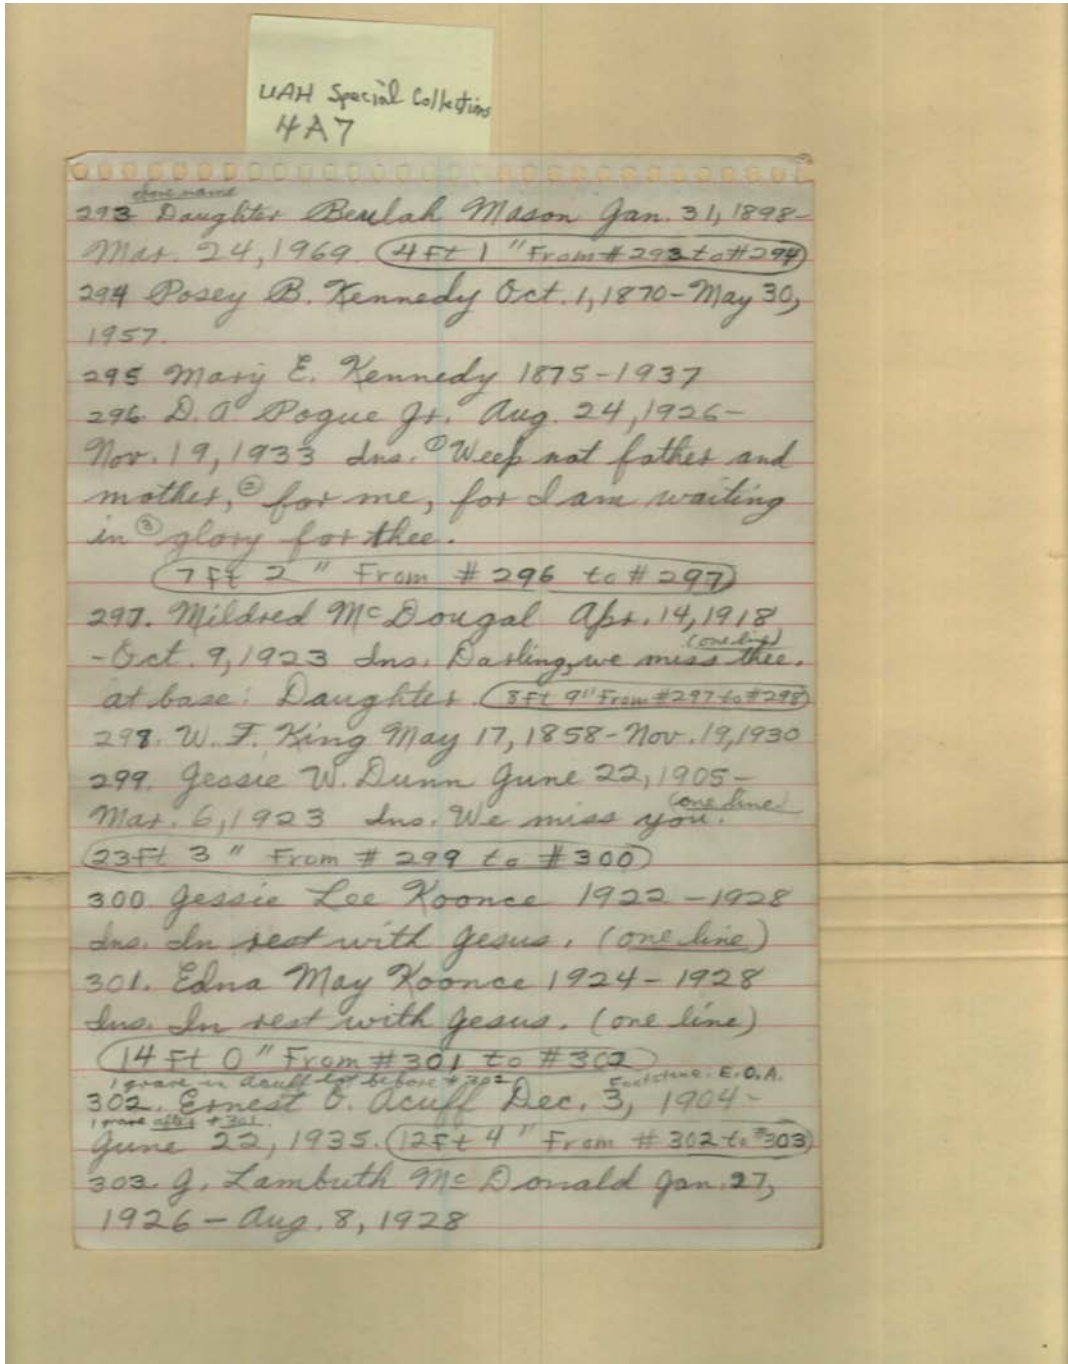 UAH Special Collections
4A7
above name
293 Daughter Beulah Mason Jan. 31, 1898-
Mar. 24, 1969. (4 Ft 1" From # 293 to # 294)
294 Posey B. Kennedy Oct. 1, 1870-May 30,
1957.
295 Mary E. Kennedy 1875-1937
296 D. A. Pogue Jr. Aug. 24, 1926-
Nov. 19, 1933 Ins. ① Weep not father and
mother, ② for me, for I am waiting
in ③ glory for thee.
(7 Ft 2" From # 296 to # 297)
297. Mildred McDougal Apr. 14, 1918
(one line)
-Oct. 9, 1923 Ins. Darling, we miss thee.
at base: Daughter. (8 Ft 9" From # 297 to # 298)
298. W. F. King May 17, 1858-Nov. 19, 1930
299. Jessie W. Dunn June 22, 1905-
(one line)
Mar. 6, 1923 Ins. We miss you.
(23 Ft 3" From # 299 to # 300)
300. Jessie Lee Koonce 1922-1928
Ins. In rest with Jesus. (one line)
301. Edna May Koonce 1924-1928
Ins. In rest with Jesus. (one line)
(14 Ft 0" From # 301 to # 302)
1 grave in Acuff lot before # 302 Footstone. E.O.A.
302. Ernest O. Acuff Dec. 3, 1904-
1 grave after # 301.
June 22, 1935. (12 Ft 4" From # 302 to # 303)
303. J. Lambuth McDonald Jan. 27,
1926-Aug. 8, 1928